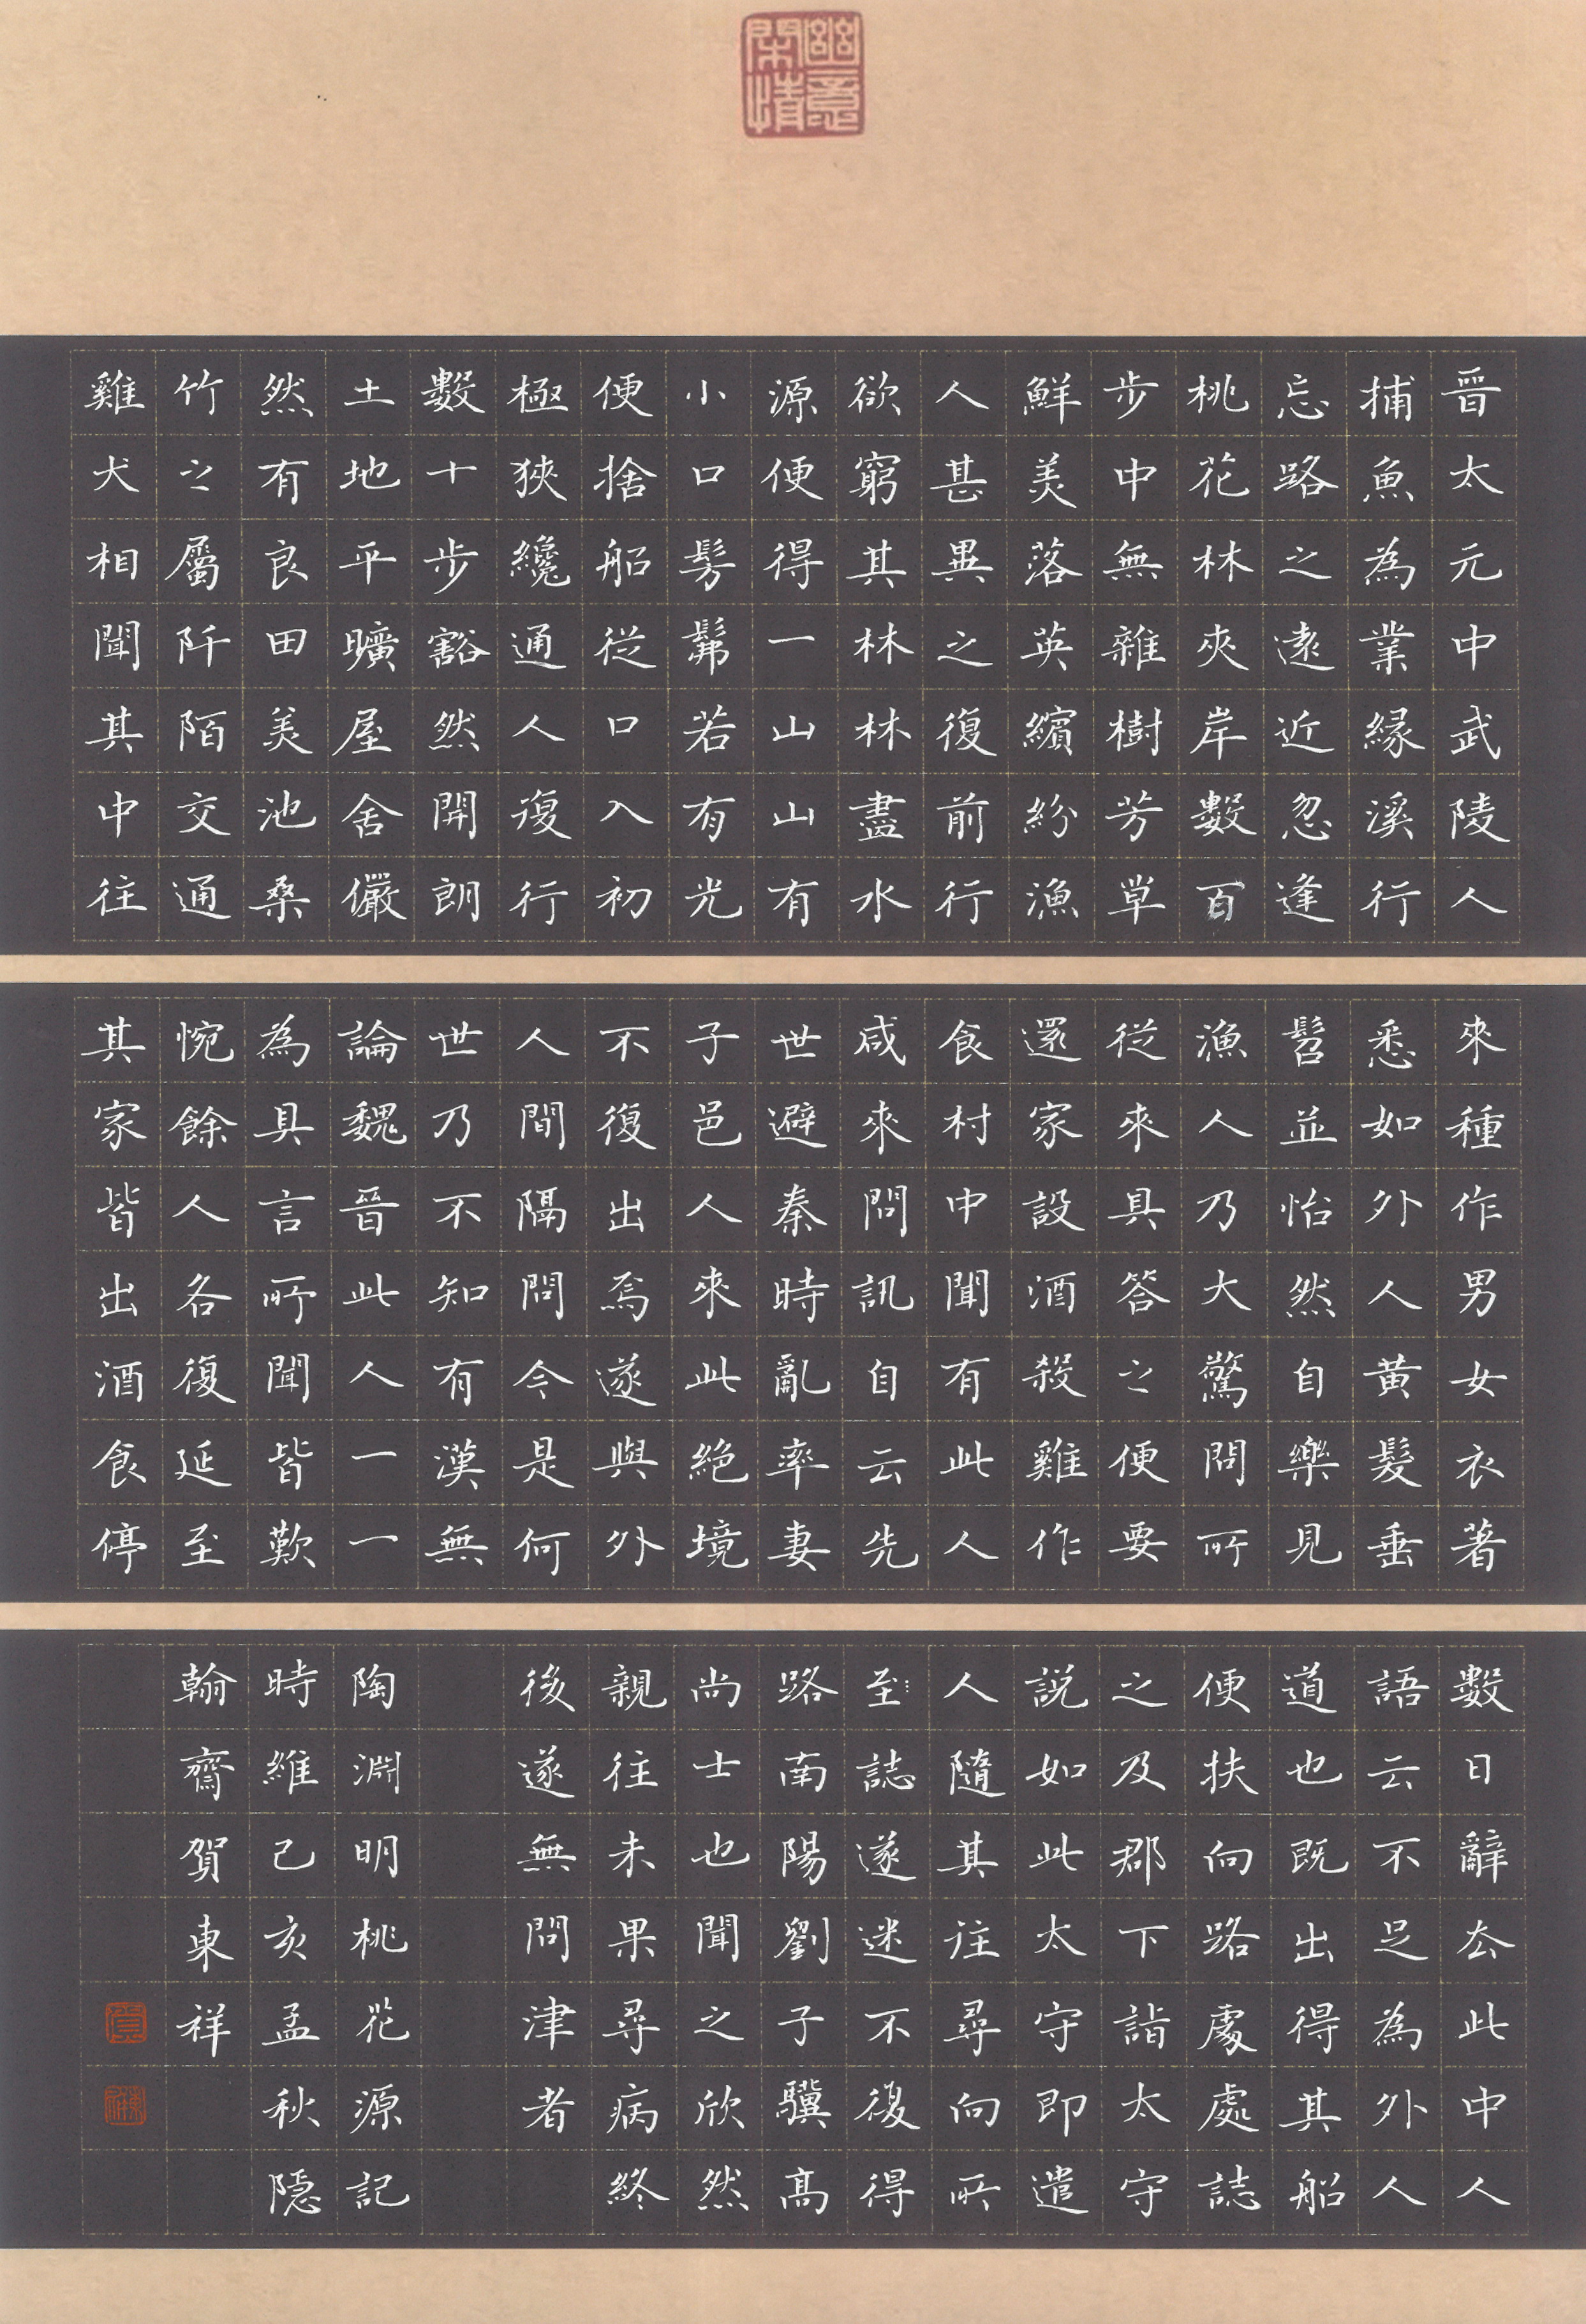 幽意閑情
晉太元中武陵人
捕魚為業緣溪行
忘路之遠近忽逢
桃花林夾岸數百
步中無雜樹芳草
鮮美落英繽紛漁
人甚異之復前行
欲窮其林林盡水
源便得一山山有
小口髣髴若有光
便捨船從口入初
極狹纔通人復行
數十步豁然開朗
土地平曠屋舍儼
然有良田美池桑
竹之屬阡陌交通
雞犬相聞其中往
來種作男女衣著
悉如外人黃髮垂
髫並怡然自樂見
漁人乃大驚問所
從來具答之便要
還家設酒殺雞作
食村中聞有此人
咸來問訊自云先
世避秦時亂率妻
子邑人來此絕境
不復出焉遂與外
人間隔問今是何
世乃不知有漢無
論魏晉此人一一
為具言所聞皆歎
惋餘人各復延至
其家皆出酒食停
數日辭去此中人
語云不足為外人
道也既出得其船
便扶向路處處誌
之及郡下詣太守
說如此太守即遣
人隨其往尋向所
至誌遂迷不復得
路南陽劉子驥高
尚士也聞之欣然
親往未果尋病終
後遂無問津者
陶淵明桃花源記
時維己亥孟秋隱
翰齋賀東祥
賀
東祥